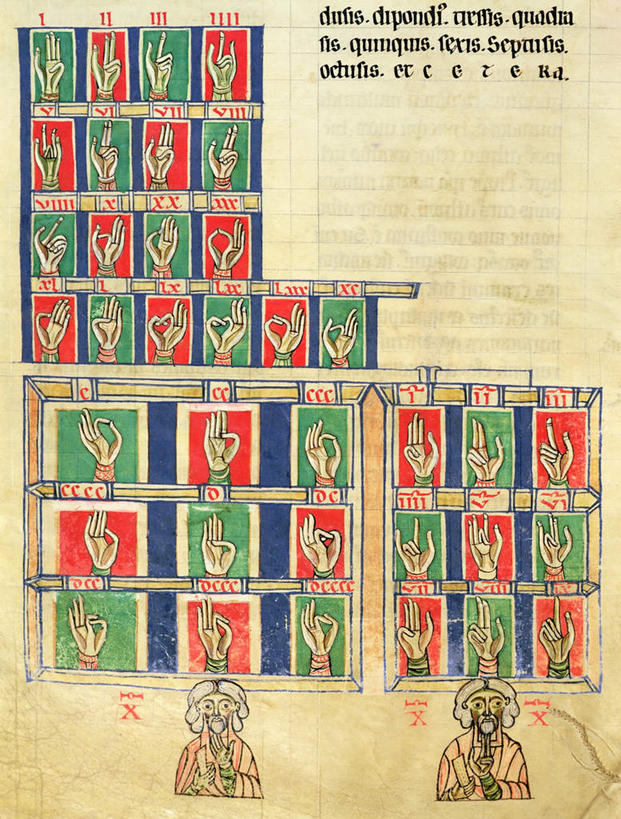 dusis. dipondi⁹. tressis. quadra
sis. quinquis. sexis. Septusis.
octusis. et c e t e ra.
I II III IIII
V VI VII VIII
VIIII X XX XXX
XL L LX LXX LXXX XC
C CC CCC
CCCC D DC
DCC DCCC DCCCC
I̅ I̅I̅ I̅I̅I̅
I̅I̅I̅I̅ V̅ V̅I̅
V̅I̅I̅ V̅I̅I̅I̅
X̅ X̅ X̅